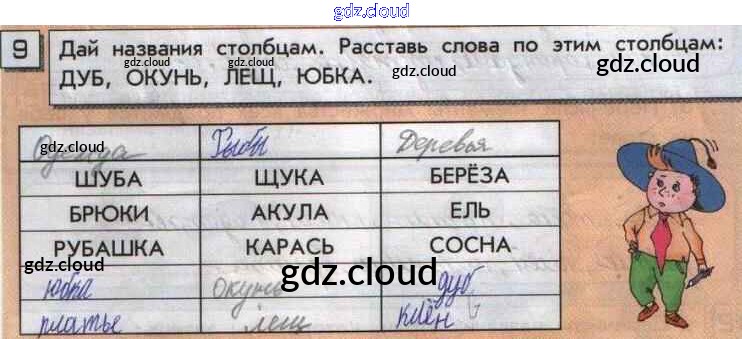 gdz.cloud
9 Дай названия столбцам. Расставь слова по этим столбцам:
gdz.cloud gdz.cloud gdz.cloud gdz.cloud gdz.cloud
ДУБ, ОКУНЬ, ЛЕЩ, ЮБКА.
gdz.cloud gdz.cloud gdz.cloud
Одежда Рыбы Деревья
ШУБА ЩУКА БЕРЁЗА
БРЮКИ АКУЛА ЕЛЬ
РУБАШКА КАРАСЬ СОСНА
gdz.cloud gdz.cloud
юбка окунь дуб
gdz.cloud
платье лещ клён